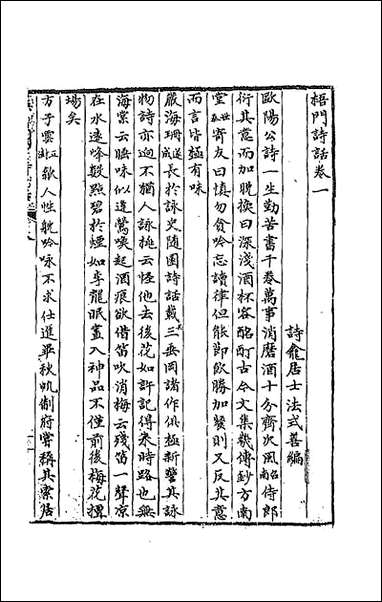 梧門詩話卷一
詩龕居士法式善編
歐陽公詩一生勤苦書千卷萬事消磨酒十分齊次風召南侍郎
衍其意而加脫換曰深淺酒杯客酩酊古今文集亂傳鈔方南
堂世舉寄友曰慎勿貪吟忘讀律但能節飲勝加餐則又反其意
而言皆極有味
嚴海珊遂成長於詠史隨園詩話戴三垂岡諸作俱極新警其詠
物詩亦迥不猶人詠桃云怪他去後花如許記得來時路也無
海棠云睡味似逢鶯喚起酒痕欲借笛吹消梅云殘笛一聲涼
在水遠峰數點碧於煙如李龍眠畫入神品不僅前後梅花擅
場矣
方子雲正澍歙人性躭吟咏不求仕進畢秋帆制府嘗稱其索居